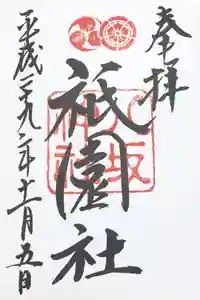 奉拝
祇園社
八坂
神社
平成二九年十一月五日